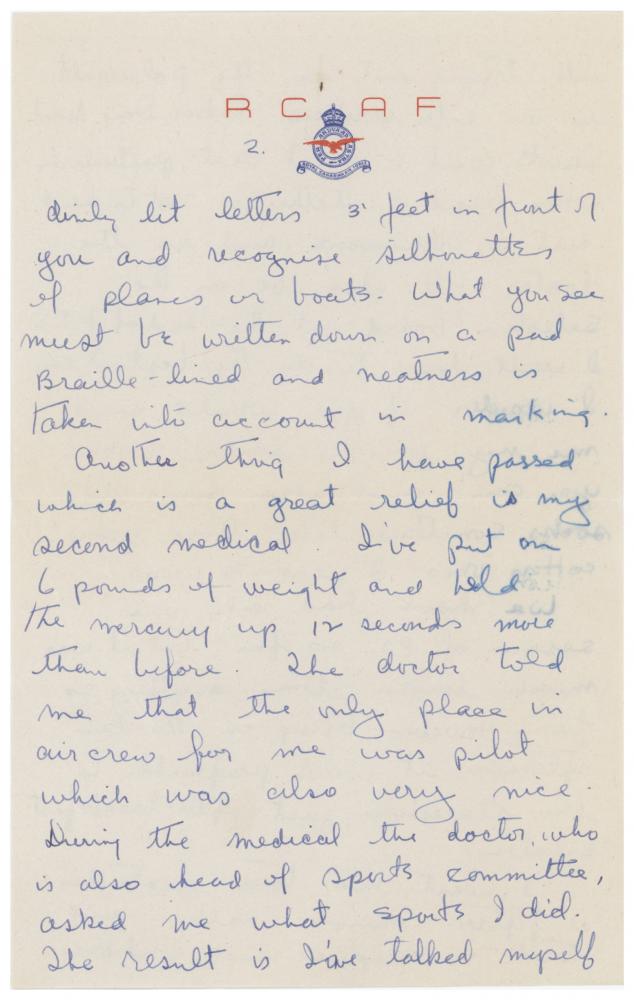 R C A F
2.
dimly lit letters 3 feet in front of
you and recognise silhouettes
of planes or boats. What you see
must be written down on a pad
Braille-lined and neatness is
taken into account in marking.
Another thing I have passed
which is a great relief is my
second medical. I've put on
6 pounds of weight and held
the mercury up 12 seconds more
than before. The doctor told
me that the only place in
aircrew for me was pilot
which was also very nice.
During the medical the doctor, who
is also head of sports committee,
asked me what sports I did.
The result is I've talked myself